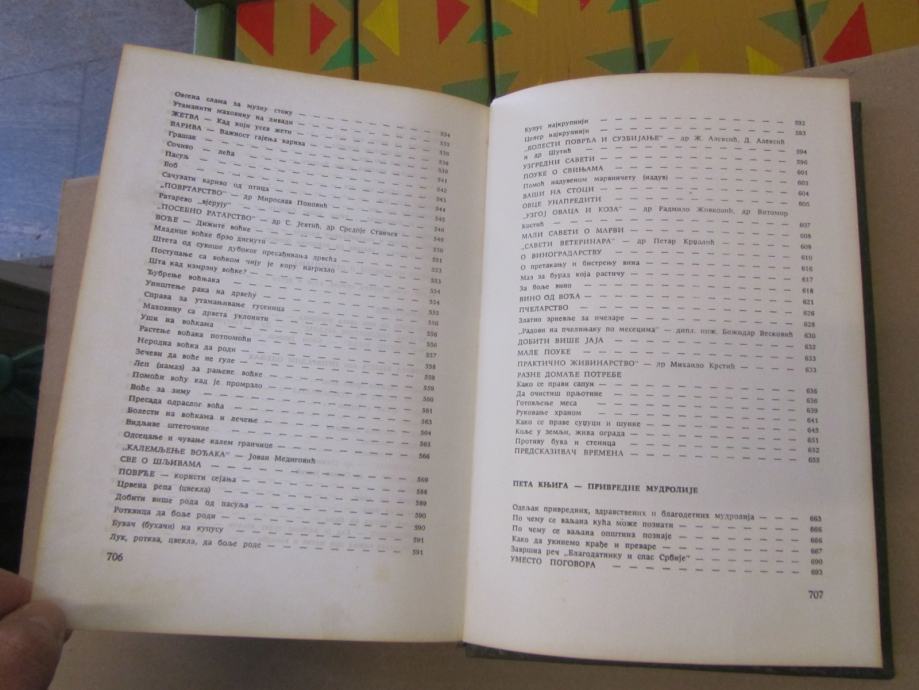 Овсена слама за музну стоку
Утаманити маховину на ливади — 534
ЖЕТВА — Кад који усев жети
ВАРИВА — Важност гајења варива
Грашак
Сочиво — лећа
Пасуљ
Боб
Сачувати вариво од птица
„ПОВРТАРСТВО" — др Мирослав Поповић
Ратарево „вјерују"
„ПОСЕБНО РАТАРСТВО" — др С. Јевтић, др Средоје Станаћев
ВОЋЕ — Дижите воћке
Младице воћке брзо дигнути
Штета од сувише дубоког пресађивања дрвећа
Поступање са воћком чију је кору нагризло
Шта кад измрзну воћке?
Ђубрење воћњака
Уништење рака на дрвећу
Справа за утамањивање гусеница
Маховину са дрвета уклонити
Уши на воћкама
Растење воћака потпомоћи
Неродна воћка да роди
Зечеви да воће не гуле
Леп (намаз) за рањене воћке
Помоћи воћу кад је промрзло
Воће за зиму
Пресада одраслог воћа
Болести на воћкама и лечење
Видљиве штеточине
Одсецање и чување калем гранчице
„КАЛЕМЉЕЊЕ ВОЋАКА" — Јован Медиговић
СВЕ О ШЉИВАМА
ПОВРЋЕ — користи сејања
Црвена репа (цвекла)
Добити више рода од пасуља
Ротквица да боље роди
Бувач (бухачи) на купусу
Лук, ротква, цвекла, да боље роде — 591
706
Купус најкрупнији — 592
Целер најкрупнији — 593
„БОЛЕСТИ ПОВРЋА И СУЗБИЈАЊЕ" — др Ж. Алексић, Д. Алексић
и др Шутић — 594
УЗГРЕДНИ САВЕТИ — 596
ПОУКЕ О СВИЊАМА — 601
Помоћ надувеном марвинчету (надув) — 603
ВАШИ НА СТОЦИ — 604
ОВЦЕ УНАПРЕДИТИ — 605
„УЗГОЈ ОВАЦА И КОЗА" — др Радмило Живковић, др Витомир
Костић — 607
МАЛИ САВЕТИ О МАРВИ — 608
„САВЕТИ ВЕТЕРИНАРА" — др Петар
О ВИНОГРАДАРСТВУ — 610
О претакању и бистрењу вина — 616
Маз за бурад која растичу — 617
За боље вино — 618
ВИНО ОД ВОЋА — 621
ПЧЕЛАРСТВО
Златно зрневље за пчеларе — 628
„Радови на пчелињаку по месецима" — дипл. инж. Божидар Весковић — 630
ДОБИТИ ВИШЕ ЈАЈА — 632
МАЛЕ ПОУКЕ — 633
„ПРАКТИЧНО ЖИВИНАРСТВО" — др Михаило Крстић — 633
РАЗНЕ ДОМАЋЕ ПОТРЕБЕ
Како се прави сапун — 636
Да очистиш прљотине — 638
Готовљење меса — 639
Руковање храном — 641
Како се праве суџуци и шунке — 645
Коље у земљи, жива ограда — 651
Противу бува и стеница — 652
ПРЕДСКАЗИВАЧ ВРЕМЕНА — 655
ПЕТА КЊИГА — ПРИВРЕДНЕ МУДРОЛИЈЕ
Одељак привредних, здравствених и благодетних мудролија — 663
По чему се ваљана кућа може познати — 666
По чему се ваљана општина познаје — 666
Како да укинемо крађе и преваре — 667
Завршна реч „Благодатнику и спас Србије" — 690
УМЕСТО ПОГОВОРА — 693
707